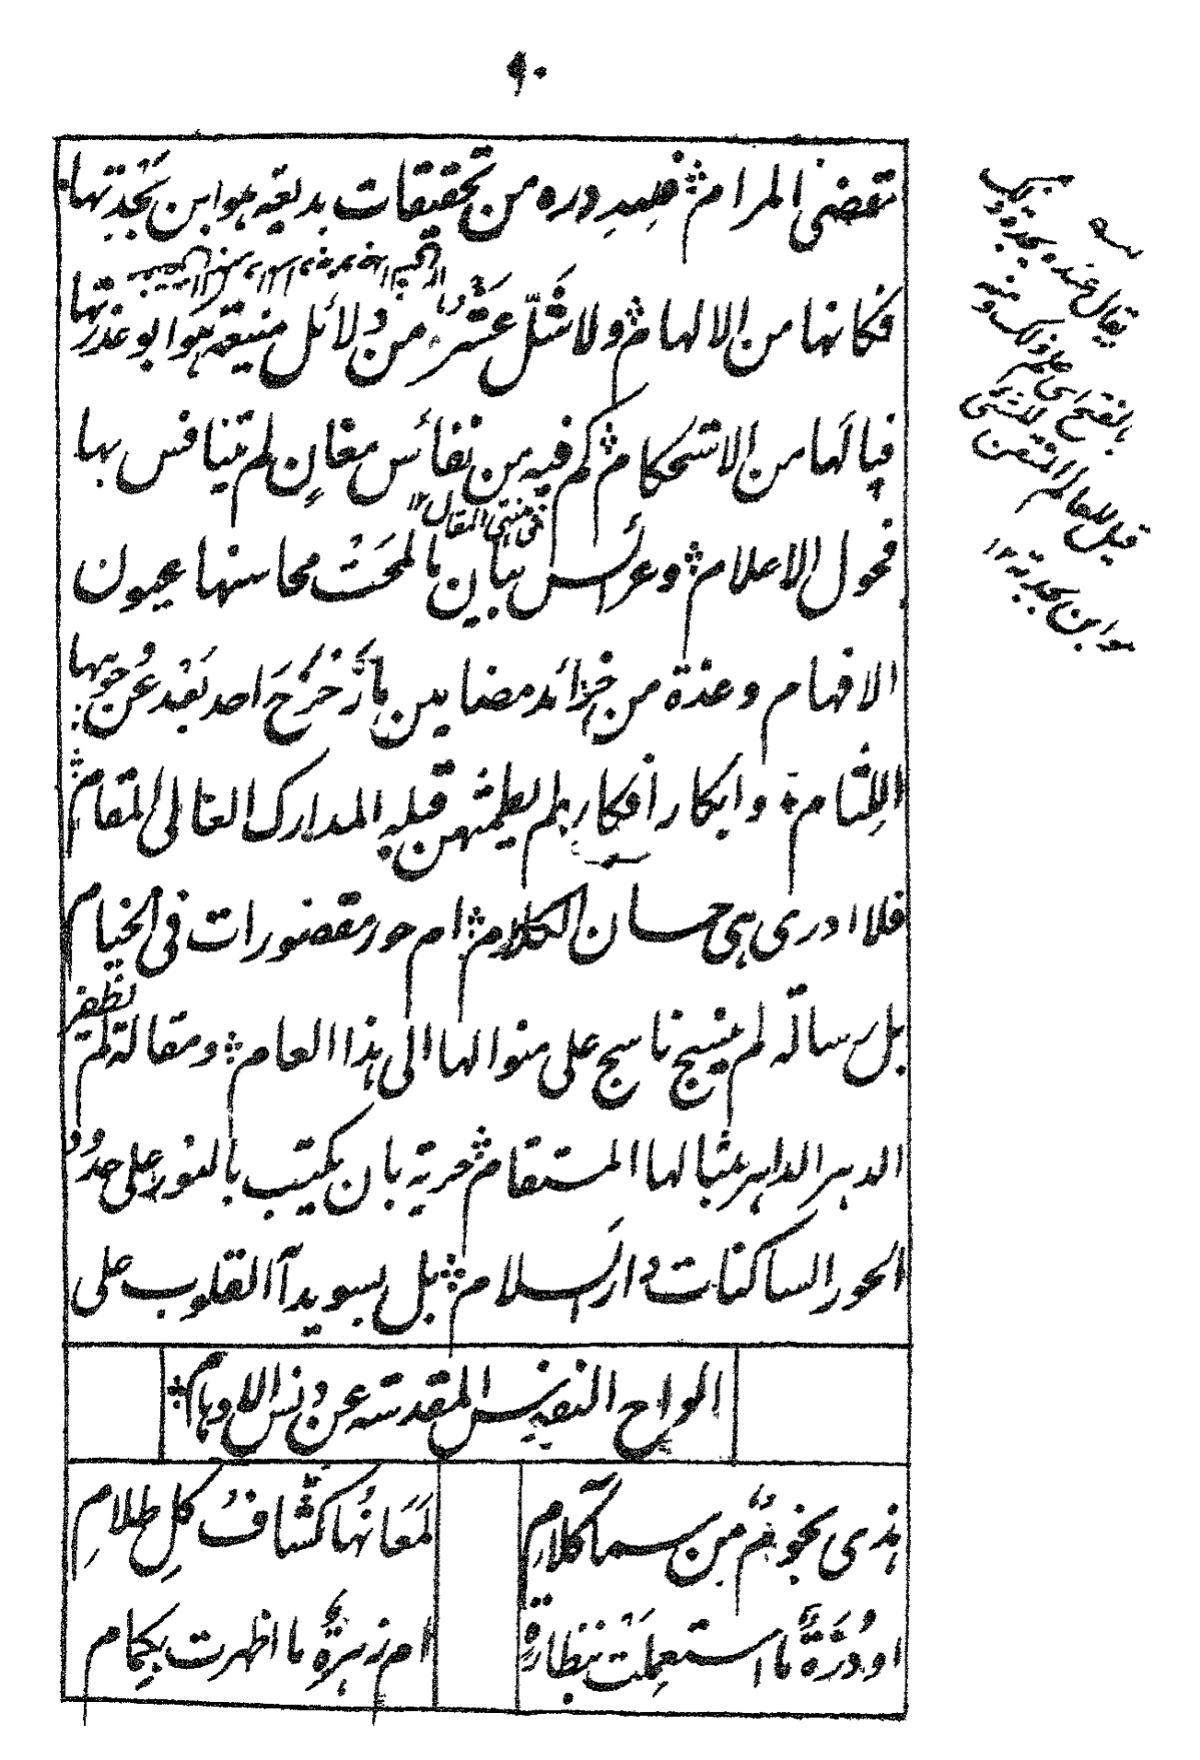 ٩٠
تقضى المرام ؞ فلله دره من تحقيقات بديعة هو ابن بَجْدتها
فكانها من الالهام ؞ ولا شَلّ عَشْرُه من دلائل منيعة هو ابو عذرتها
فيالها من الاستحكام ؞ كم فيه من نفائس مغانٍ لم يتنافس بها
فحول الاعلام ؞ وعرائس بيان ما لمحَتْ محاسنها عيون
الافهام وعدة من خرائد مضامين ما زَحْزَحَ احد بَعْد عن وجوهها
اللِثام ؞ وابكار أفكار لم يطمثهن قبله المدارك العالى المقام ؞
فلا ادرى هى حسان الكلام ؞ ام حور مقصورات فى الخيام
بل رسالة لم ينسج ناسج على منوالها الى هذا العام ؞ ومقالة لم تظفر
الدهر الداهر بمثالها المستقام ؞ حرية بان يكتب بالنور على خدود
الحور الساكنات دار السلام ؞ بل بسويدآ القلوب على
الواح النفيس المقدسة عن دنس الاوهام ؞
هذى نجومٌ من سمآ كلامِ
لَمَعَانُها كشّافُ كلِ ظلامِ
او دُرَّةٌ ما استعمِلَت بنظارةٍ
ام زهرةٌ ما اظهرت بكمام
يقال عنده بجدة ذلك
بالفتح اى علم ذلك ومنه
قيل للعالم المتقن
هو ابن بجدته ١٢